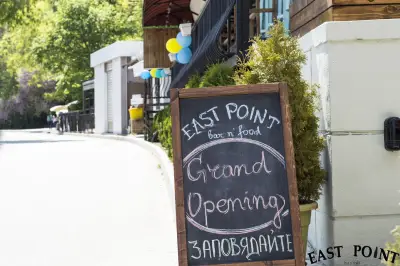 EAST POINT
bar n' food
Grand
Opening
ЗАПОВЯДАЙТЕ
EAST POINT